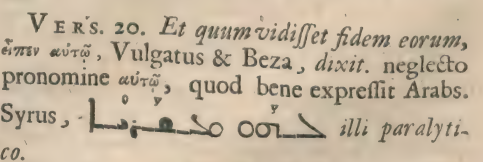 VERS. 20. Et quum vidiſſet fidem eorum,
εἶπεν αὐτῷ, Vulgatus & Beza, dixit. neglecto
pronomine αὐτῷ, quod bene expreſſit Arabs.
Syrus, illi paralyti-
co.